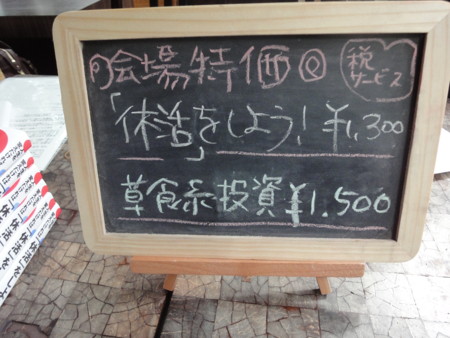 会場特価
税
サービス
「休活」をしよう！ ¥1,300
草食系投資 ¥1,500